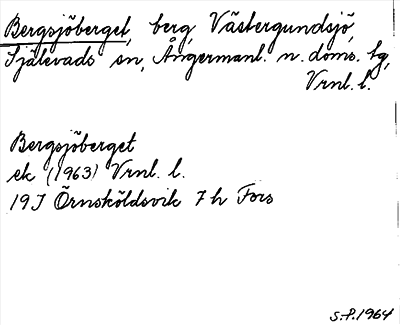 Bergsjöberget, berg, Västergundsjö,
Själevads sn, Ångermanl. n. doms. tg,
Vrnl. l.
Bergsjöberget
ek (1963) Vrnl. l.
19J Örnsköldsvik 7h Fors
S.P. 1964